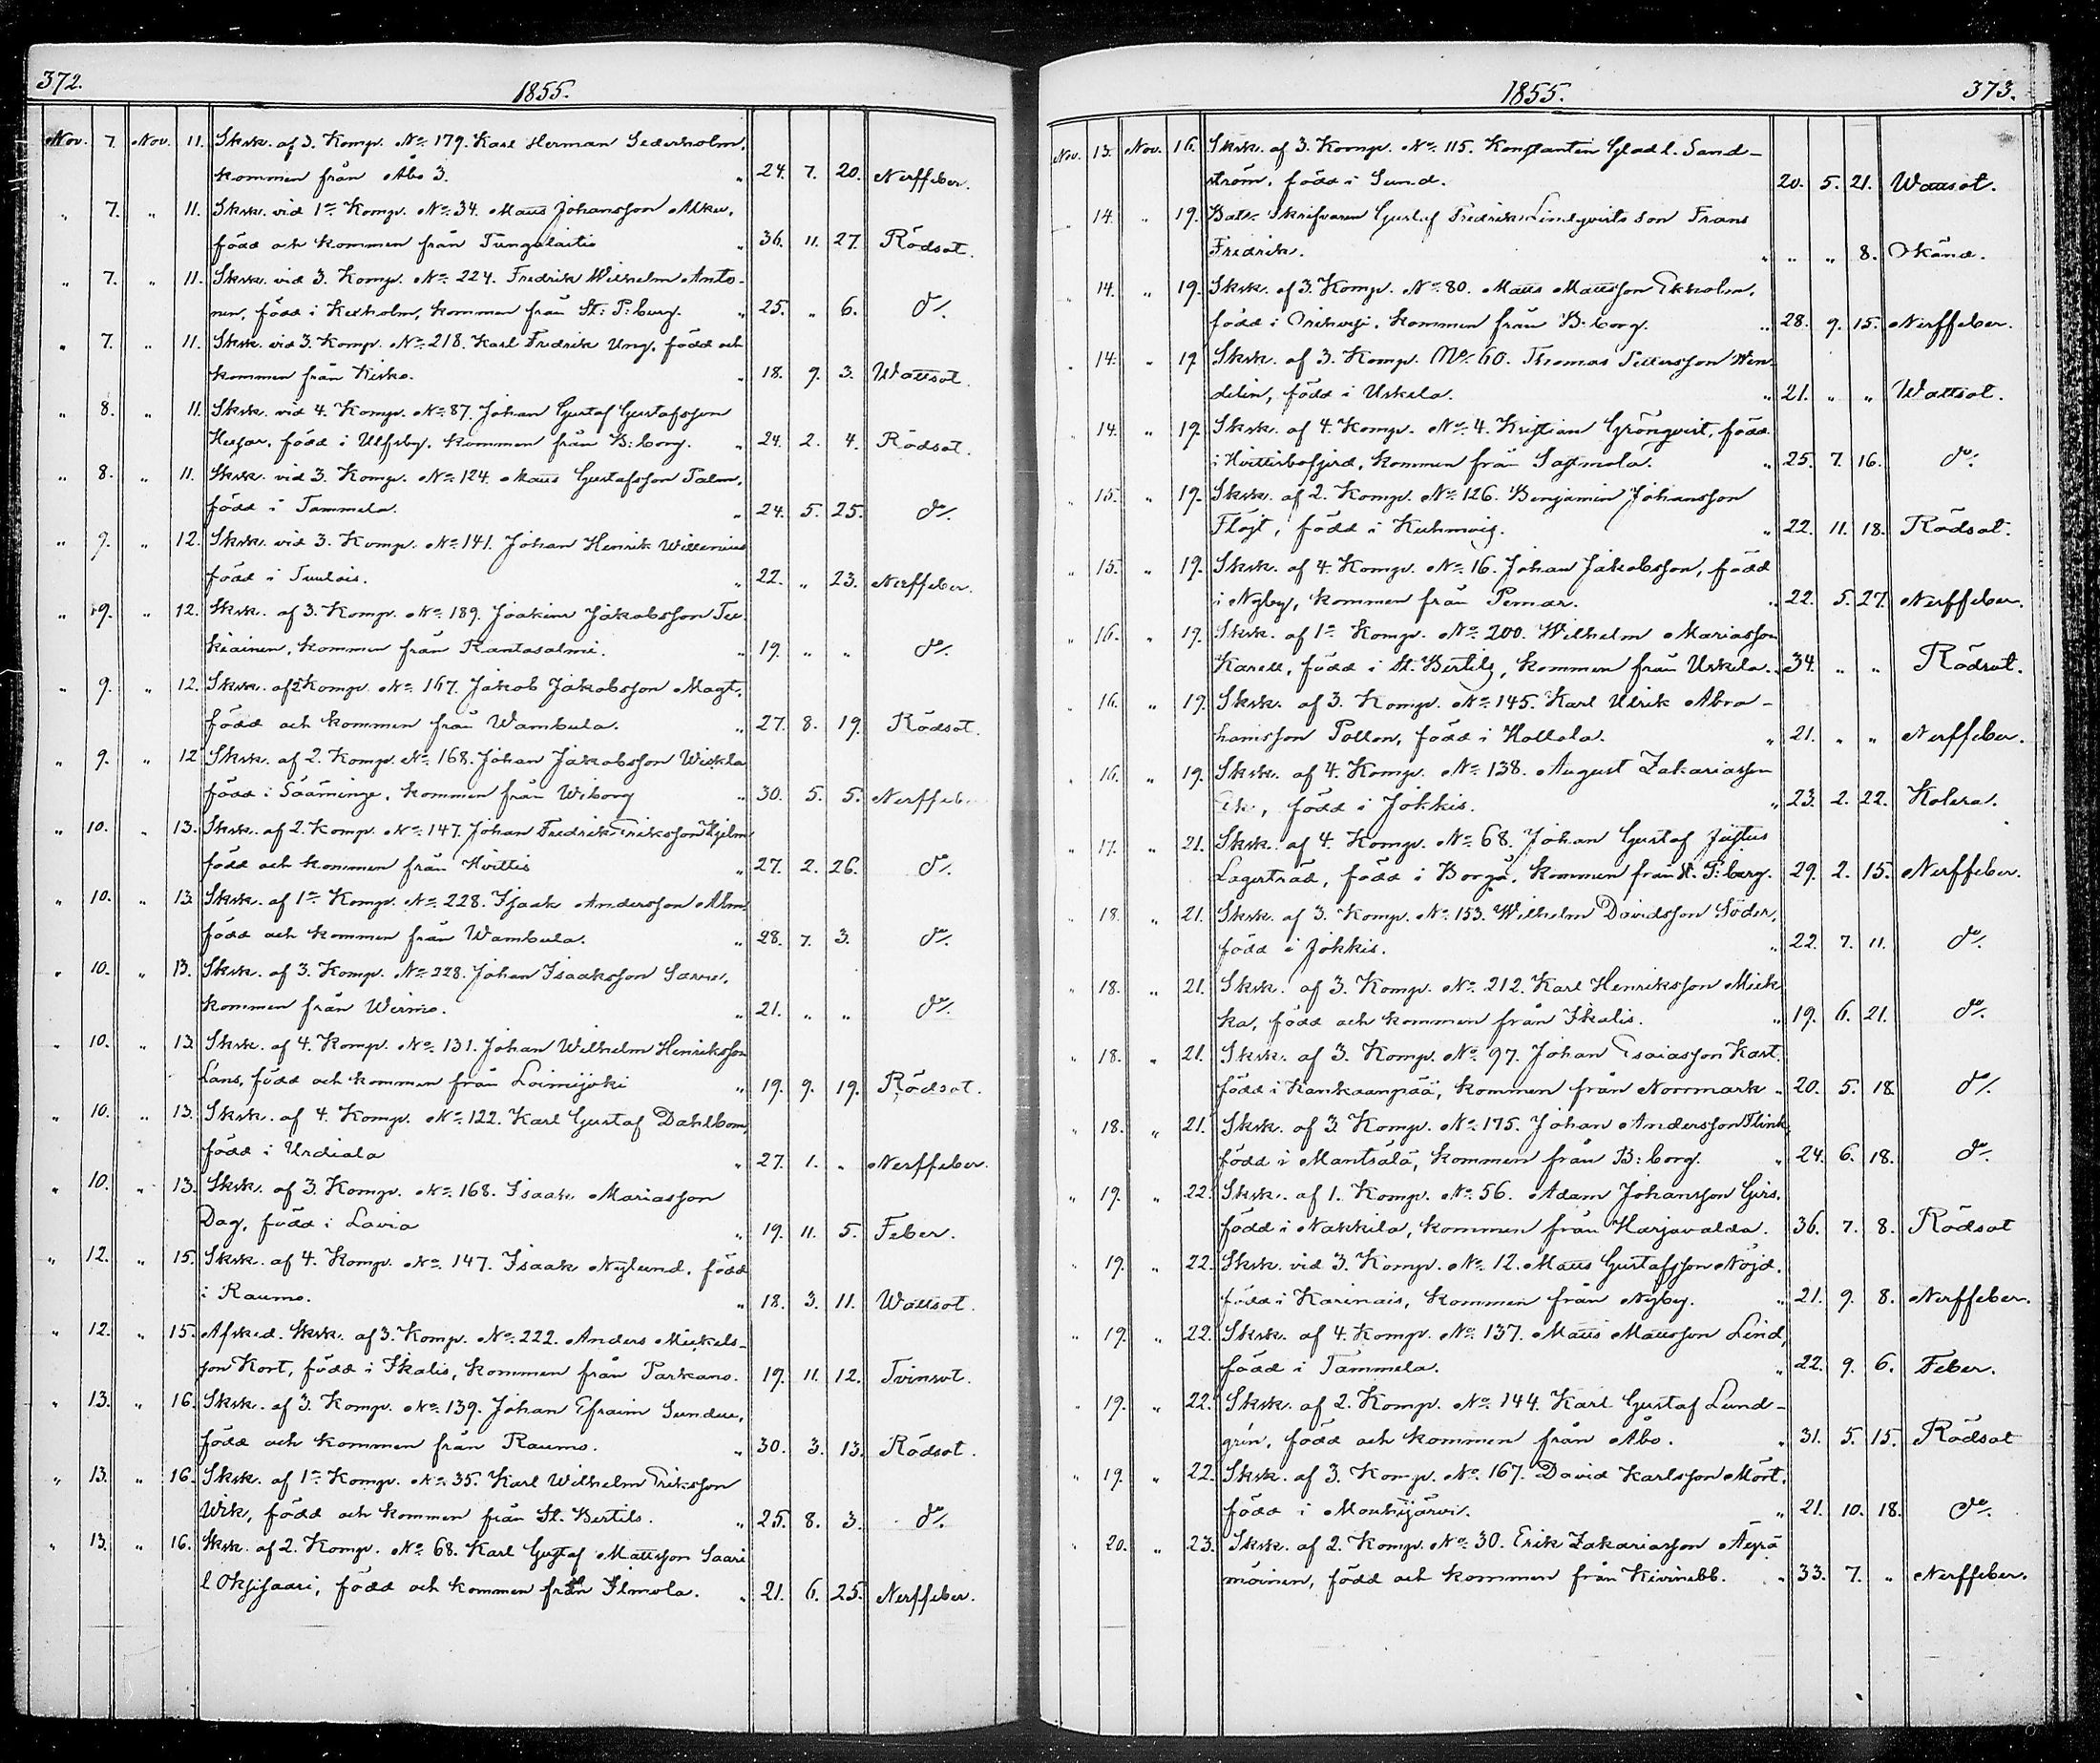 372.
1855.
Nov. 7. Nov. 11. Skrk. af 3. Komp. No. 179. Karl Herman Sederholm,
kommen från Åbo 3. " 24. 7. 20. Nerffeber.
" 7. " 11. Skrk. vid 1:a Komp. No. 34. Matts Johansson Alker,
född och kommen från Tungalaitio " 36. 11. 27. Rödsot.
" 7. " 11. Skrk. vid 3. Komp. No. 224. Fredrik Wilhelm Anto-
nen, född i Kexholm, kommen från St: P:burg. " 25. " 6. do/.
" 7. " 11. Skrk. vid 3. Komp. No. 218. Karl Fredrik Ung, född och
kommen från Kisko. " 18. 9. 3. Wattsot.
" 8. " 11. Skrk. vid 4. Komp. No. 87. Johan Gustaf Gustafsson
född i Ulfsby, kommen från B:borg. " 24. 2. 4. Rödsot.
" 8. " 11. Skrk. vid 3. Komp. No. 124. Matts Gustafsson Palm,
född i Tammela. " 24. 5. 25. do/.
" 9. " 12. Skrk. vid 3. Komp. No. 141. Johan Henrik Willenius
född i Tuulois. " 22. " 23. Nerffeber.
" 9. " 12. Skrk. af 3. Komp. No. 189. Joakim Jakobsson Tee-
kiäinen, kommen från Rantasalmi. " 19. " " do/.
" 9. " 12. Skrk. af 2 Komp. No. 167. Jakob Jakobsson Magt,
född och kommen från Wambula. " 27. 8. 19. Rödsot.
" 9. " 12 Skrk. af 2. Komp. No. 168. Johan Jakobsson Wiskla
född i Sääminge, kommen från Wiborg " 30. 5. 5. Nerffeb.
" 10. " 13. Skrk. af 2. Komp. No. 147. Johan Fredrik Eriksson Hjelm
född och kommen från Hvittis " 27. 2. 26. do/.
" 10. " 13. Skrk. af 1:a Komp. No. 228. Isaak Andersson Alm,
född och kommen från Wambula. " 28. 7. 3. do/.
" 10. " 13. Skrk. af 3. Komp. No. 228. Johan Isaaksson
kommen från Wirmo. " 21. " " do/.
" 10. " 13. Skrk. af 4. Komp. No. 131. Johan Wilhelm Henriksson
Lans, född och kommen från Loimijoki " 19. 9. 19. Rödsot.
" 10. " 13. Skrk. af 4. Komp. No. 122. Karl Gustaf Dahlbom,
född i Urdiala " 27. 1. " Nerffeber.
" 10. " 13. Skrk. af 3. Komp. No. 168. Isaak Mariasson
Dag, född i Lavia " 19. 11. 5. Feber.
" 12. " 15. Skrk. af 4. Komp. No. 147. Isaak Nylund, född
i Raumo. " 18. 3. 11. Wattsot.
" 12. " 15. Afsked. Skrk. af 3. Komp. No. 222. Anders Mickels-
son Kort, född i Ikalis, kommen från Parkano. 19. 11. 12. Tvinsot.
" 13. " 16. Skrk. af 3. Komp. No. 139. Johan Efraim Sundee,
född och kommen från Raumo. " 30. 3. 13. Rödsot.
" 13. " 16. Skrk. af 1:a Komp. No. 35. Karl Wilhelm Eriksson
Wik, född och kommen från St. Bertils. " 25. 8. 3. do/.
" 13. " 16. Skrk. af 2. Komp. No. 68. Karl Gustaf Mattsson Saari
l. Oksisaari, född och kommen från Ilmola. " 21. 6. 25. Nerffeber.
1855.
373.
Nov. 13. Nov. 16. Skrk. af 3. Komp. No. 115. Konstantin Glad l. Sand-
ström, född i Sund. 20. 5. 21. Wattsot.
" 14. " 19. Bat:s Skrifvaren Gustaf Fredrik Lindqvists son Frans
Fredrik. " " " 8. Okänd.
" 14. " 19. Skrk. af 3. Komp. No. 80. Matts Mattsson Ekholm,
född i Orihvesi, kommen från B:borg. " 28. 9. 15. Nerffeber.
" 14. " 19. Skrk. af 3. Komp. No. 60. Thomas Pettersson Wen-
delin, född i Uskela. " 21. " " Wattsot.
" 14. " 19. Skrk. af 4. Komp. No. 4. Kristian Grönqvist, född
i Hvittisbofjerd, kommen från Sastmola. " 25. 7. 16. do/.
" 15. " 19. Skrk. af 2. Komp. No. 126. Benjamin Johansson
Flöjt, född i Kuhmois. " 22. 11. 18. Rödsot.
" 15. " 19. Skrk. af 4. Komp. No. 16. Johan Jakobsson, född
i Nyby, kommen från Pemar. " 22. 5. 27. Nerffeber.
" 16. " 19. Skrk. af 1:a Komp. No. 200. Wilhelm Mariasson
Karell, född i St. Bertils, kommen från Uskela. " 34. " " Rödsot.
" 16. " 19. Skrk. af 3. Komp. No. 145. Karl Ulrik Abra-
hamsson Pollon, född i Hollola. " 21. " " Nerffeber.
" 16. " 19. Skrk. af 4. Komp. No. 138. August Zakariasson
Ek, född i Jokkis. " 23. 2. 22. Kolera.
" 17. " 21. Skrk. af 4. Komp. No. 68. Johan Gustaf Justus
Lagerträd, född i Borgå, kommen från St. P:berg. 29. 2. 15. Nerffeber.
" 18. " 21. Skrk. af 3. Komp. No. 153. Wilhelm Davidsson Söder,
född i Jokkis. " 22. 7. 11. do/.
" 18. " 21. Skrk. af 3. Komp. No. 212. Karl Henriksson Miek-
ka, född och kommen från Ikalis. " 19. 6. 21. do/.
" 18. " 21. Skrk. af 3. Komp. No. 97. Johan Esaiasson Kast.
född i Kankaanpää, kommen från Norrmark " 20. 5. 18. do/.
" 18. " 21. Skrk. af 3. Komp. No. 175. Johan Andersson Flink,
född i Mantsälä, kommen från B:borg. " 24. 6. 18. do/.
" 19. " 22. Skrk. af 1. Komp. No. 56. Adam Johansson Girs,
född i Nakkila, kommen från Harjavalda. 36. 7. 8. Rödsot
" 19. " 22. Skrk. vid 3. Komp. No. 12. Matts Gustafsson Nöjd,
född i Karinais, kommen från Nyby. " 21. 9. 8. Nerffeber.
" 19. " 22. Skrk. af 4. Komp. No. 137. Matts Mattsson Lind,
född i Tammela. " 22. 9. 6. Feber.
" 19. " 22. Skrk. af 2. Komp. No. 144. Karl Gustaf Lund-
grén, född och kommen från Åbo. " 31. 5. 15. Rödsot
" 19. " 22. Skrk. af 3. Komp. No. 167. David Karlsson Mört,
född i Mouhijärvi. " 21. 10. 18. do/.
" 20. " 23. Skrk. af 2. Komp. No. 30. Erik Zakariasson Äyrä-
möinen, född och kommen från Kivinebb. " 33. 7. " Nerffeber.